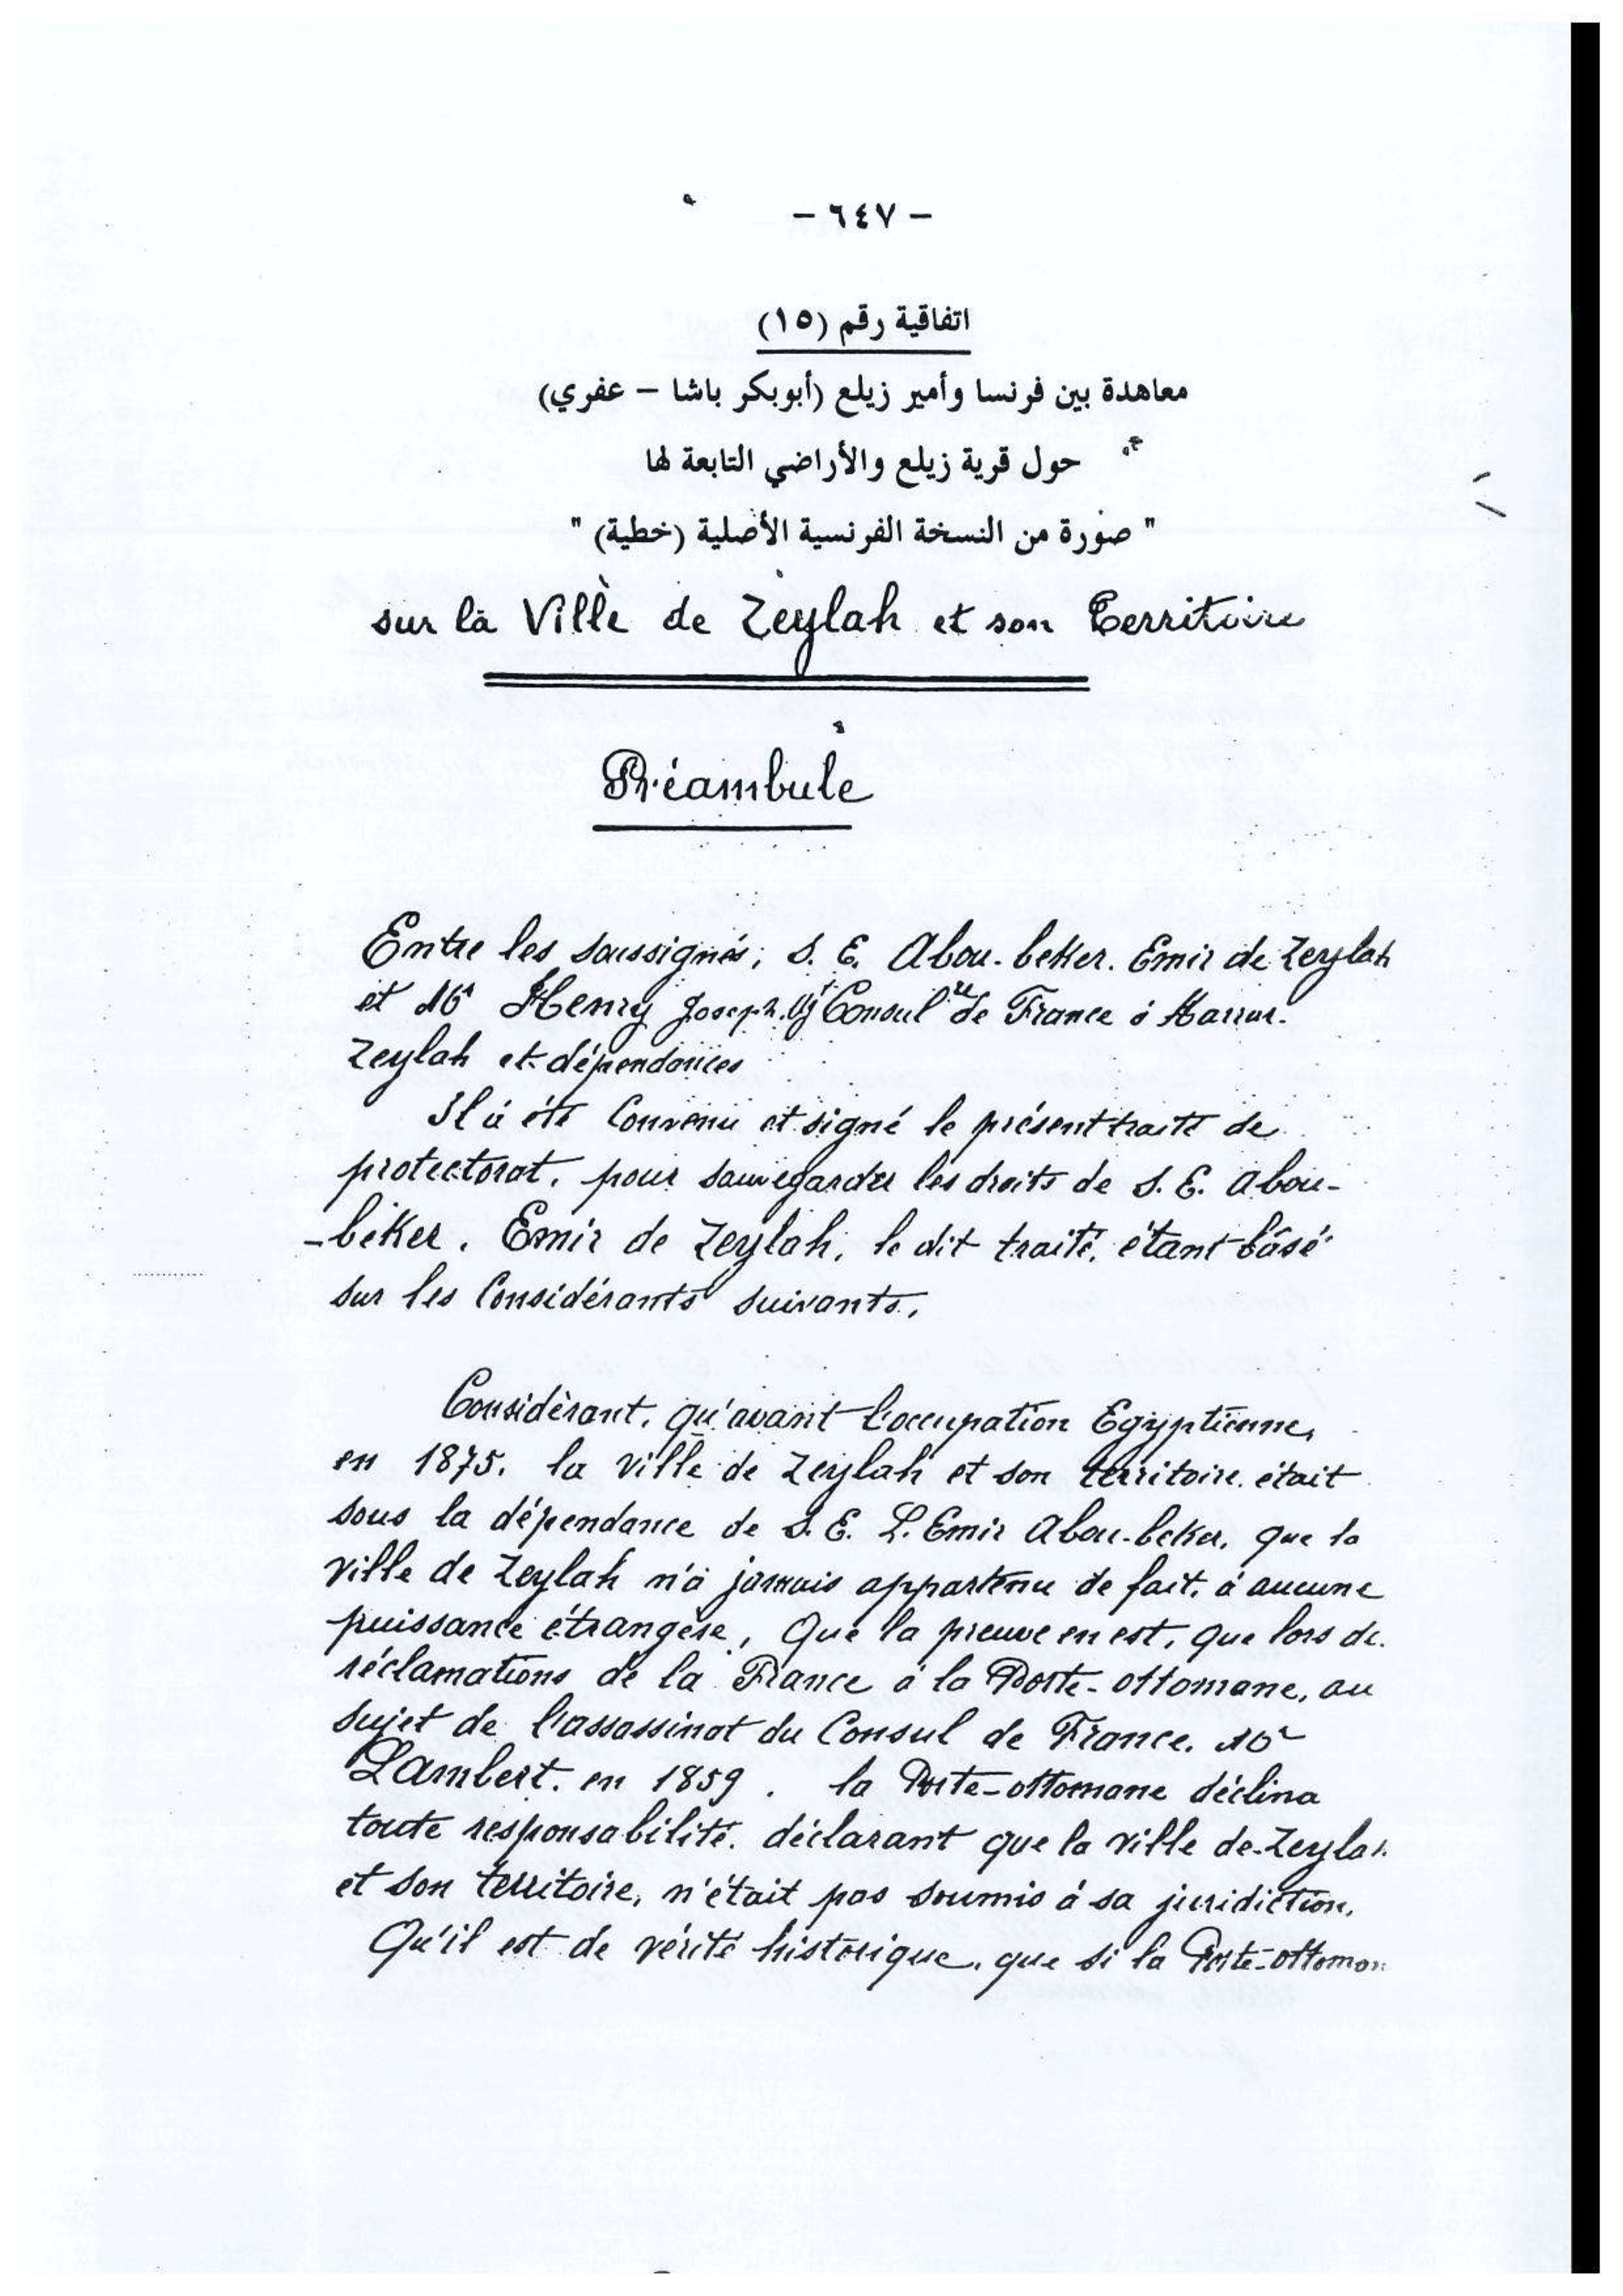 - ٦٤٧ -
اتفاقية رقم (١٥)
معاهدة بين فرنسا وأمير زيلع (أبوبكر باشا - عفري)
حول قرية زيلع والأراضي التابعة لها
" صورة من النسخة الفرنسية الأصلية (خطية) "
sur la Ville de Zeylah et son Territoire
Préambule
Entre les soussignés; S. E. Abou-beker. Emir de Zeylah
et Mr Henry Joseph. Consul de France à Harrar.
Zeylah et dépendances
Il à été Convenu et signé le présent traité de
protectorat, pour sauvegarder les droits de S. E. Abou-
-beker. Emir de Zeylah, le dit traité, étant bâsé
sur les Considérants suivants,
Considèrant, qu'avant l'occupation Egyptienne,
en 1875. la ville de Zeylah et son territoire était
sous la dépendance de S. E. L. Emir Abou-beker, que la
ville de Zeylah n'à jamais appartenu de fait, à aucune
puissance étrangère, Que la preuve en est, que lors de
réclamations de la France à la Porte-ottomane, au
sujet de l'assassinat du Consul de France. Mr
Lambert. en 1859. la Porte-ottomane déclina
toute responsabilité. déclarant que la ville de Zeylah
et son territoire, n'était pas soumis à sa juridiction.
Qu'il est de vérité historique, que si la Porte-ottoman